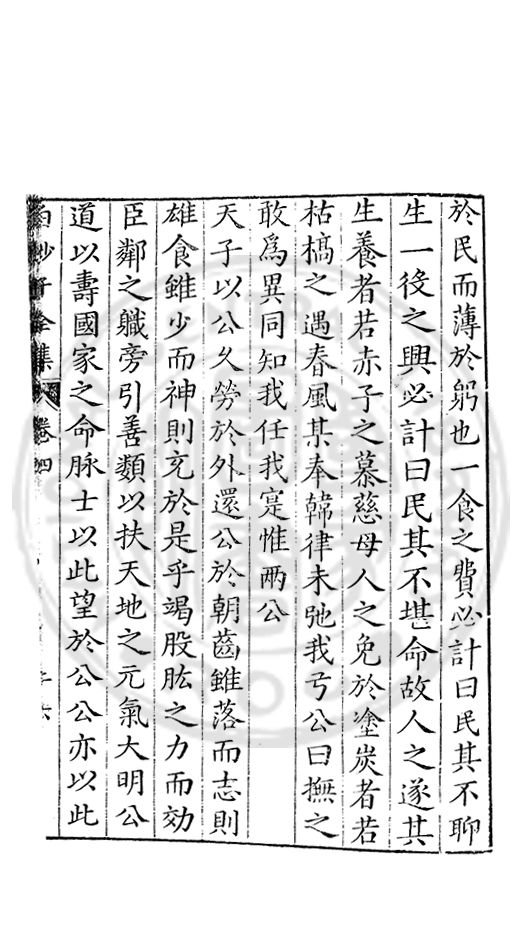 於民而薄於躬也一食之費必計曰民其不聊
生一後之興必計曰民其不堪命故人之遂其
生養者若赤子之慕慈母人之免於塗炭者若
枯槁之遇春風某奉韓律未弛我弓公曰撫之
敢爲異同知我任我寔惟兩公
天子以公久勞於外還公於朝齒雖落而志則
雄食雖少而神則充於是乎竭股肱之力而効
臣鄰之職旁引善類以扶天地之元氣大明公
道以壽國家之命脉士以此望於公公亦以此
白沙子全集 卷四